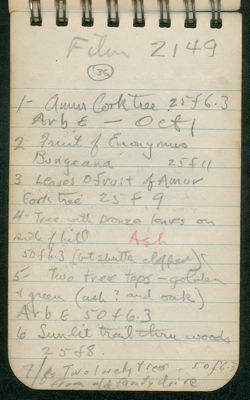 Film 2149
36
1- Amur Corktree 25 f 6.3
Arb E - Oct 1
2 Fruit of Euonymus
Bungeana 25 f 11
3 Leaves & fruit of Amur
Cork tree 25 f 9
4- Tree with bronze leaves on
side of hill Ash
50 f 6.3 (1st shutter clapped)?
5- Two tree tops - golden
+ green (ash? and oak)
Arb E 50 f 6.3
6 Sunlit trail thru woods
25 f 8.
7 Two lovely trees 50 f 6.3
from drive